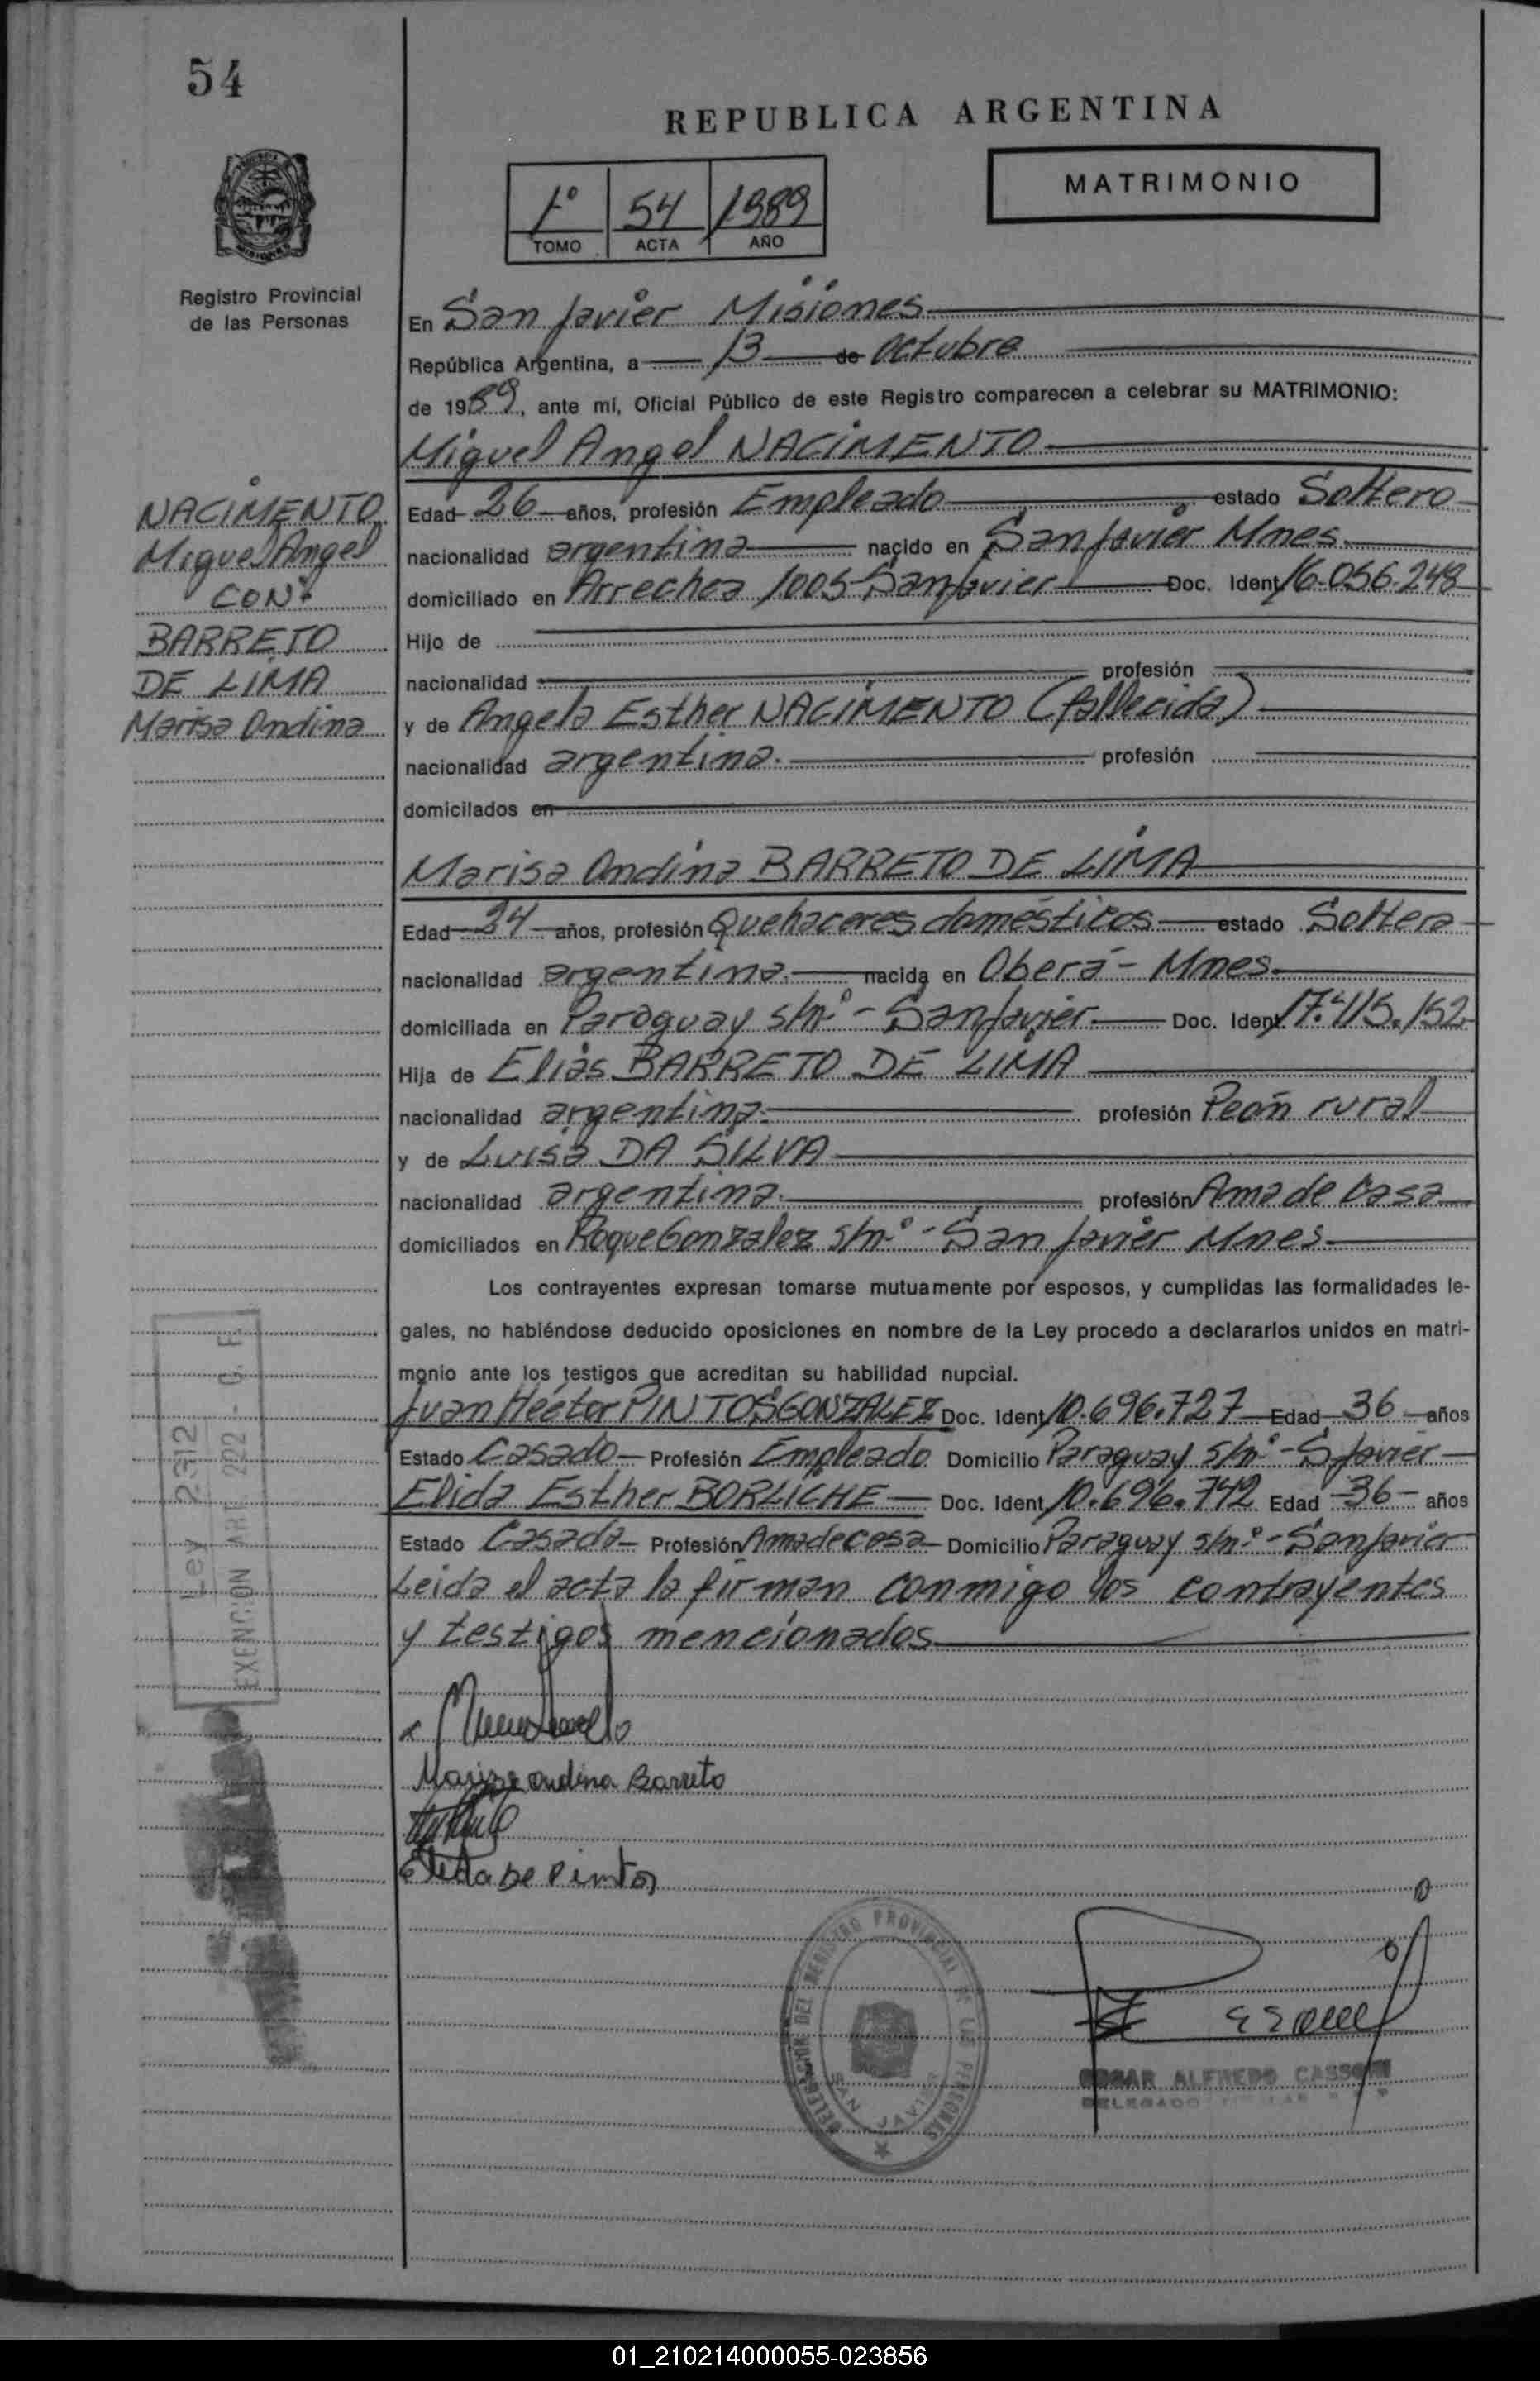 54
REPUBLICA ARGENTINA
MATRIMONIO
1º 54 1989
TOMO ACTA AÑO
Registro Provincial
de las Personas
En San Javier Misiones
República Argentina, a 13 de octubre
de 1989, ante mí, Oficial Público de este Registro comparecen a celebrar su MATRIMONIO:
Miguel Angel NACIMENTO
NACIMENTO
Miguel Angel
CON
BARRETO
DE LIMA
Marisa Ondina
Edad 26 años, profesión Empleado estado Soltero
nacionalidad argentina nacido en San Javier Mnes.
domiciliado en Arrechea 1005 San Javier Doc. Ident. 16.056.248
Hijo de
nacionalidad profesión
y de Angela Esther NACIMENTO (fallecida)
nacionalidad argentina. profesión
domicilados en
Marisa Ondina BARRETO DE LIMA
Edad 24 años, profesión Quehaceres domésticos estado Soltera
nacionalidad argentina. nacida en Oberá - Mnes.
domiciliada en Paraguay s/nº - San Javier. Doc. Ident. 17.115.152
Hija de Elias BARRETO DE LIMA
nacionalidad argentina. profesión Peón rural
y de Luisa DA SILVA
nacionalidad argentina. profesión Ama de casa
domiciliados en Roque Gonzalez s/nº - San Javier Mnes.
Los contrayentes expresan tomarse mutuamente por esposos, y cumplidas las formalidades le-
gales, no habiéndose deducido oposiciones en nombre de la Ley procedo a declararlos unidos en matri-
monio ante los testigos que acreditan su habilidad nupcial.
Juan Héctor PINTOS GONZALEZ Doc. Ident. 10.696.727 Edad 36 años
Estado Casado Profesión Empleado Domicilio Paraguay s/nº - S Javier
Elida Esther BORLICHE Doc. Ident. 10.696.742 Edad 36 años
Estado Casada Profesión Ama de casa Domicilio Paraguay s/nº - San Javier
Leida el acta la firman conmigo los contrayentes
y testigos mencionados
Ley 2312
EXENCION ART. 222 - C. F.
Marisa Ondina Barreto
Elida De Pintos
DELEGACION DEL REGISTRO PROVINCIAL DE LAS PERSONAS
SAN JAVIER
EDGAR ALFREDO CASSONI
DELEGADO
01_210214000055-023856